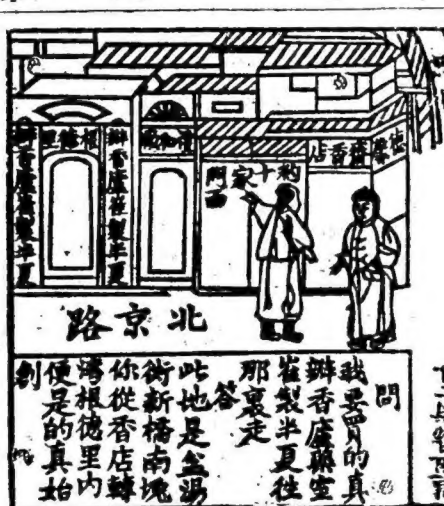 根德里
瓣香廬崔製半夏
瓣香廬崔製半夏
齋香店
約十家
門面
北京路
問
我要買的真
瓣香廬藥室
崔製半夏往
那裏走
答
此地是盆湯
衖新橋南堍
你從香店轉
灣根德里內
便是的真始
創